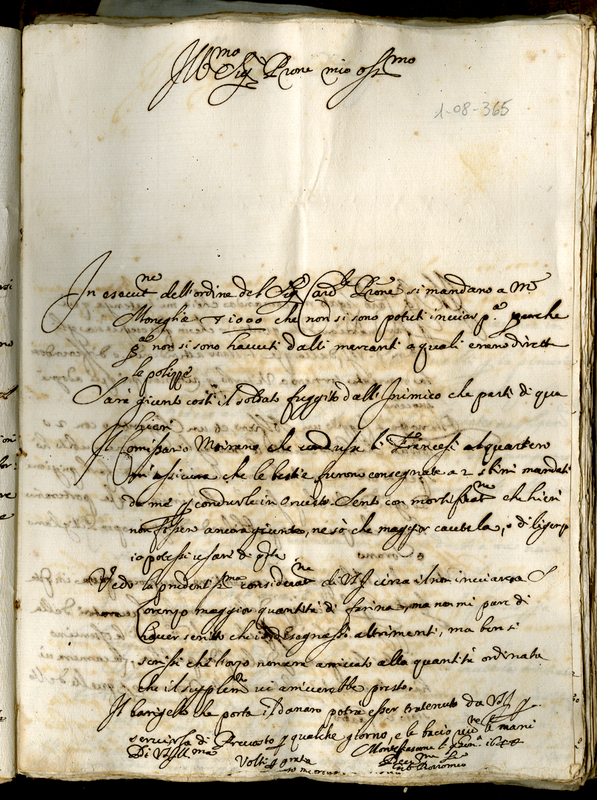 Ill.mo Sig.r P.rone mio oss.mo
1-08-365
In esecut.ne dell'ordine del Sig.r Card.le P.rone si mandano a M.re
Moneghe 1000 che non si sono potuti inviar p.a perche
p.a non si sono havuti dalli mercanti a quali erano dirett
le polizze
Sarà giunto costì il soldato fuggito dall'Inimico che partì di qua
hieri
Il Comissario Moirano che condusse li Francesi al quartiero
m'assicura che le bestie furono consegnate a 2 mandati
da me p condurle in Orvieto. Sento con mortificat.ne che hieri
non fosser ancora giunte, ne sò che maggior cautela, o diligenza
io potessi usare di q.lla
Vedo la prudentiss.ma considerat.ne di VS Ill. circa il non inviar a S
Lorenzo maggior quantità di farina, ma non mi pare di
haver scritto che disegnassi altrimenti, ma bensì
scrissi che l'orzo non era arrivato alla quantità ordinata
che il supplem.to vi arriverebbe presto.
Il barigello che porta il danaro potrà esser tratenuto da VS Ill. p
servirsi di Prevosto p qualche giorno, e le bacio le mani
Di VS Ill.ma
Montefiascone
Volti grata
Borromeo